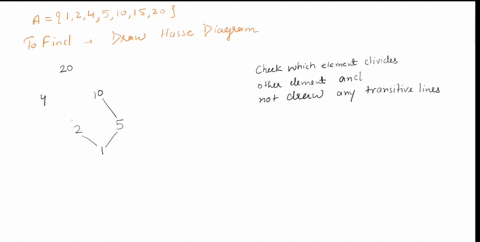 A = {1,2,4,5,10,15,20}
To Find → Draw Hasse Diagram
20
Check which element divides
other element and
not draw any transitive lines
4 10
2 5
1